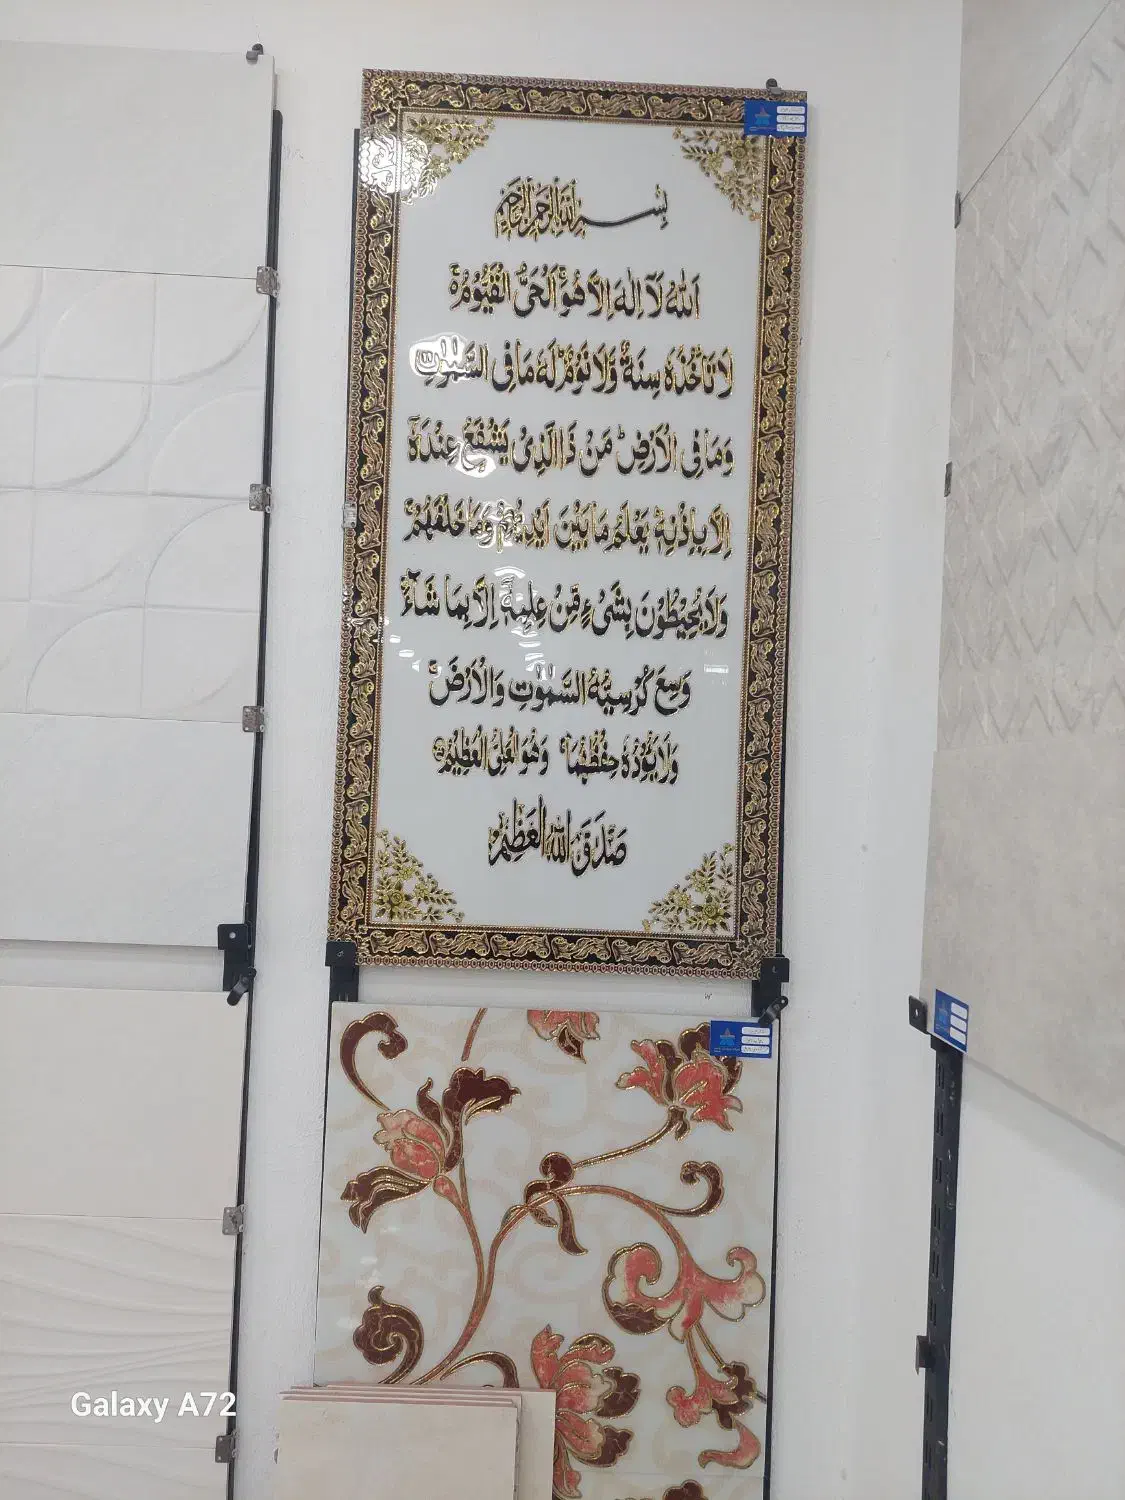 بِسْمِ اللهِ الرَّحْمٰنِ الرَّحِيْمِ
اَللهُ لَاۤ اِلٰهَ اِلَّا هُوَ اَلْحَيُّ الْقَيُّوْمُ
لَا تَاْخُذُهٗ سِنَةٌ وَّلَا نَوْمٌ لَهٗ مَا فِى السَّمٰوٰتِ
وَمَا فِى الْاَرْضِ مَنْ ذَا الَّذِىْ يَشْفَعُ عِنْدَهٗۤ
اِلَّا بِاِذْنِهٖ يَعْلَمُ مَا بَيْنَ اَيْدِيْهِمْ وَمَا خَلْفَهُمْ
وَلَا يُحِيْطُوْنَ بِشَىْءٍ مِّنْ عِلْمِهٖۤ اِلَّا بِمَا شَآءَ
وَسِعَ كُرْسِيُّهُ السَّمٰوٰتِ وَالْاَرْضَ
وَلَا يَؤُدُهٗ حِفْظُهُمَا وَهُوَ الْعَلِىُّ الْعَظِيْمُ
صَدَقَ اللهُ الْعَظِيْمُ
Galaxy A72